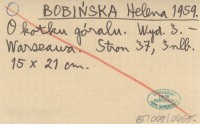 BOBIŃSKA Helena 1959.
O kotku góralu. Wyd. 3. —
Warszawa. Stron 37, 3 nlb.
15 x 21 cm.